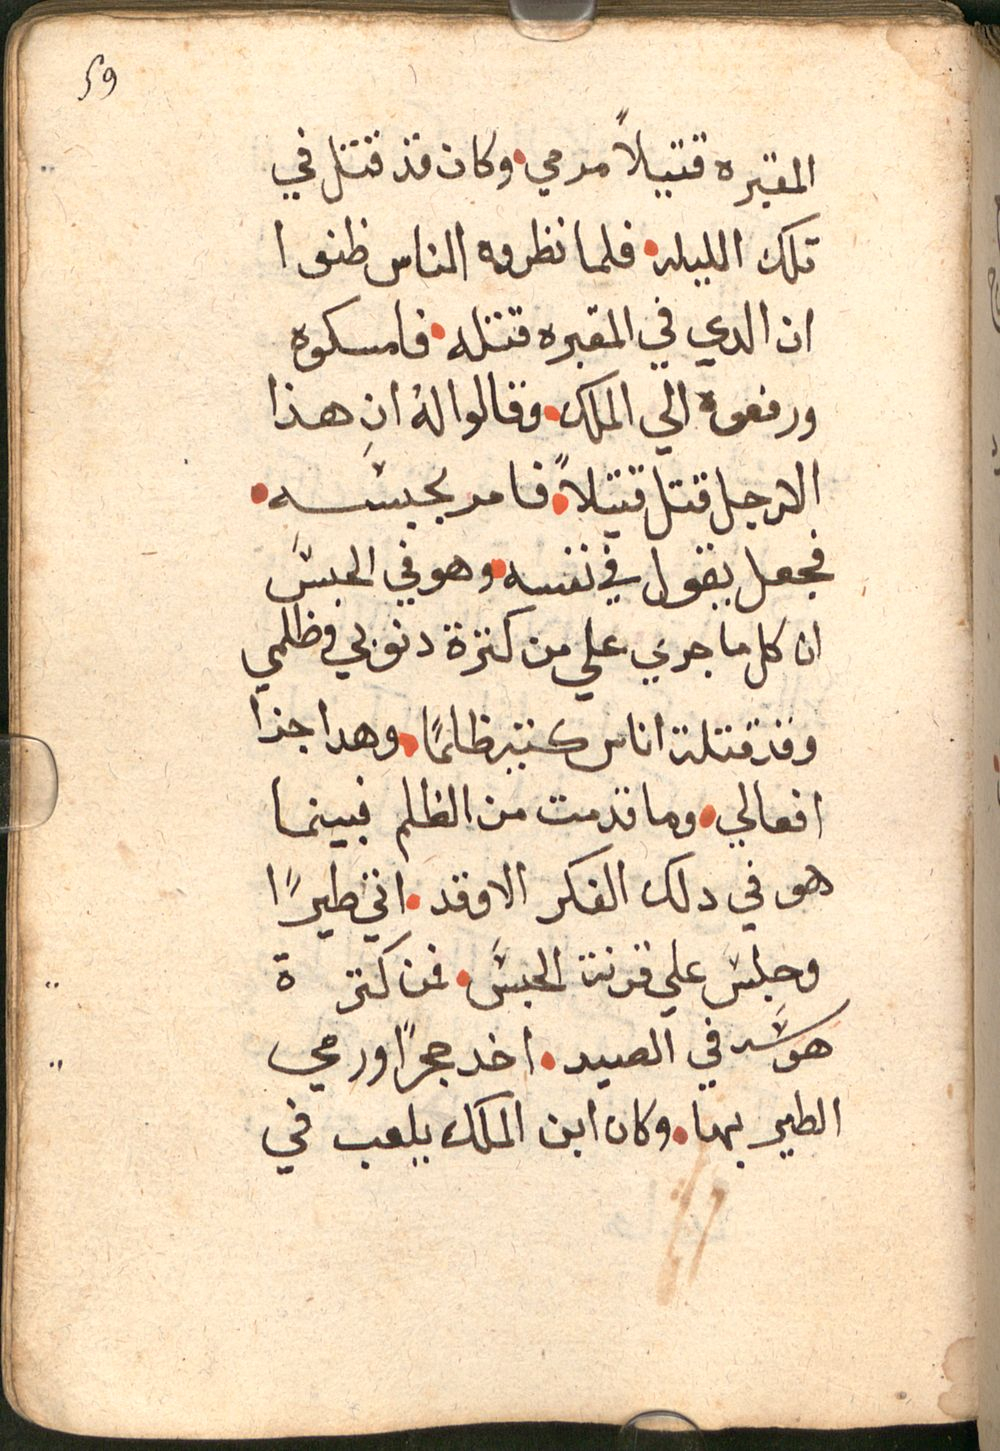 59
المقبره قتيلاً مرمي. وكان قد قتل في
تلك الليله. فلما نظروه الناس ظنوا
ان الدي في المقبره قتله. فامسكوه
ورفعوه الي الملك. وقالوا لهُ انِ هذا
الرجل قتل قتيلاً. فامر بحبسه.
فجعل يقول في نفسه. وهو في الحبس
ان كل ما جري علي من كترة دنوبي وظلمي
وقد قتلت اناس كتير ظلمًا. وهدا جزا
افعالي. وما قدمت من الظلم فبينما
هو في دلك الفكر الا وقد. اتي طيرًا
وجلس علي قرنت الحبس. فمن كترة
هوسه في الصيد. اخد حجرًا ورمي
الطير بها. وكان ابن الملك يلعب في